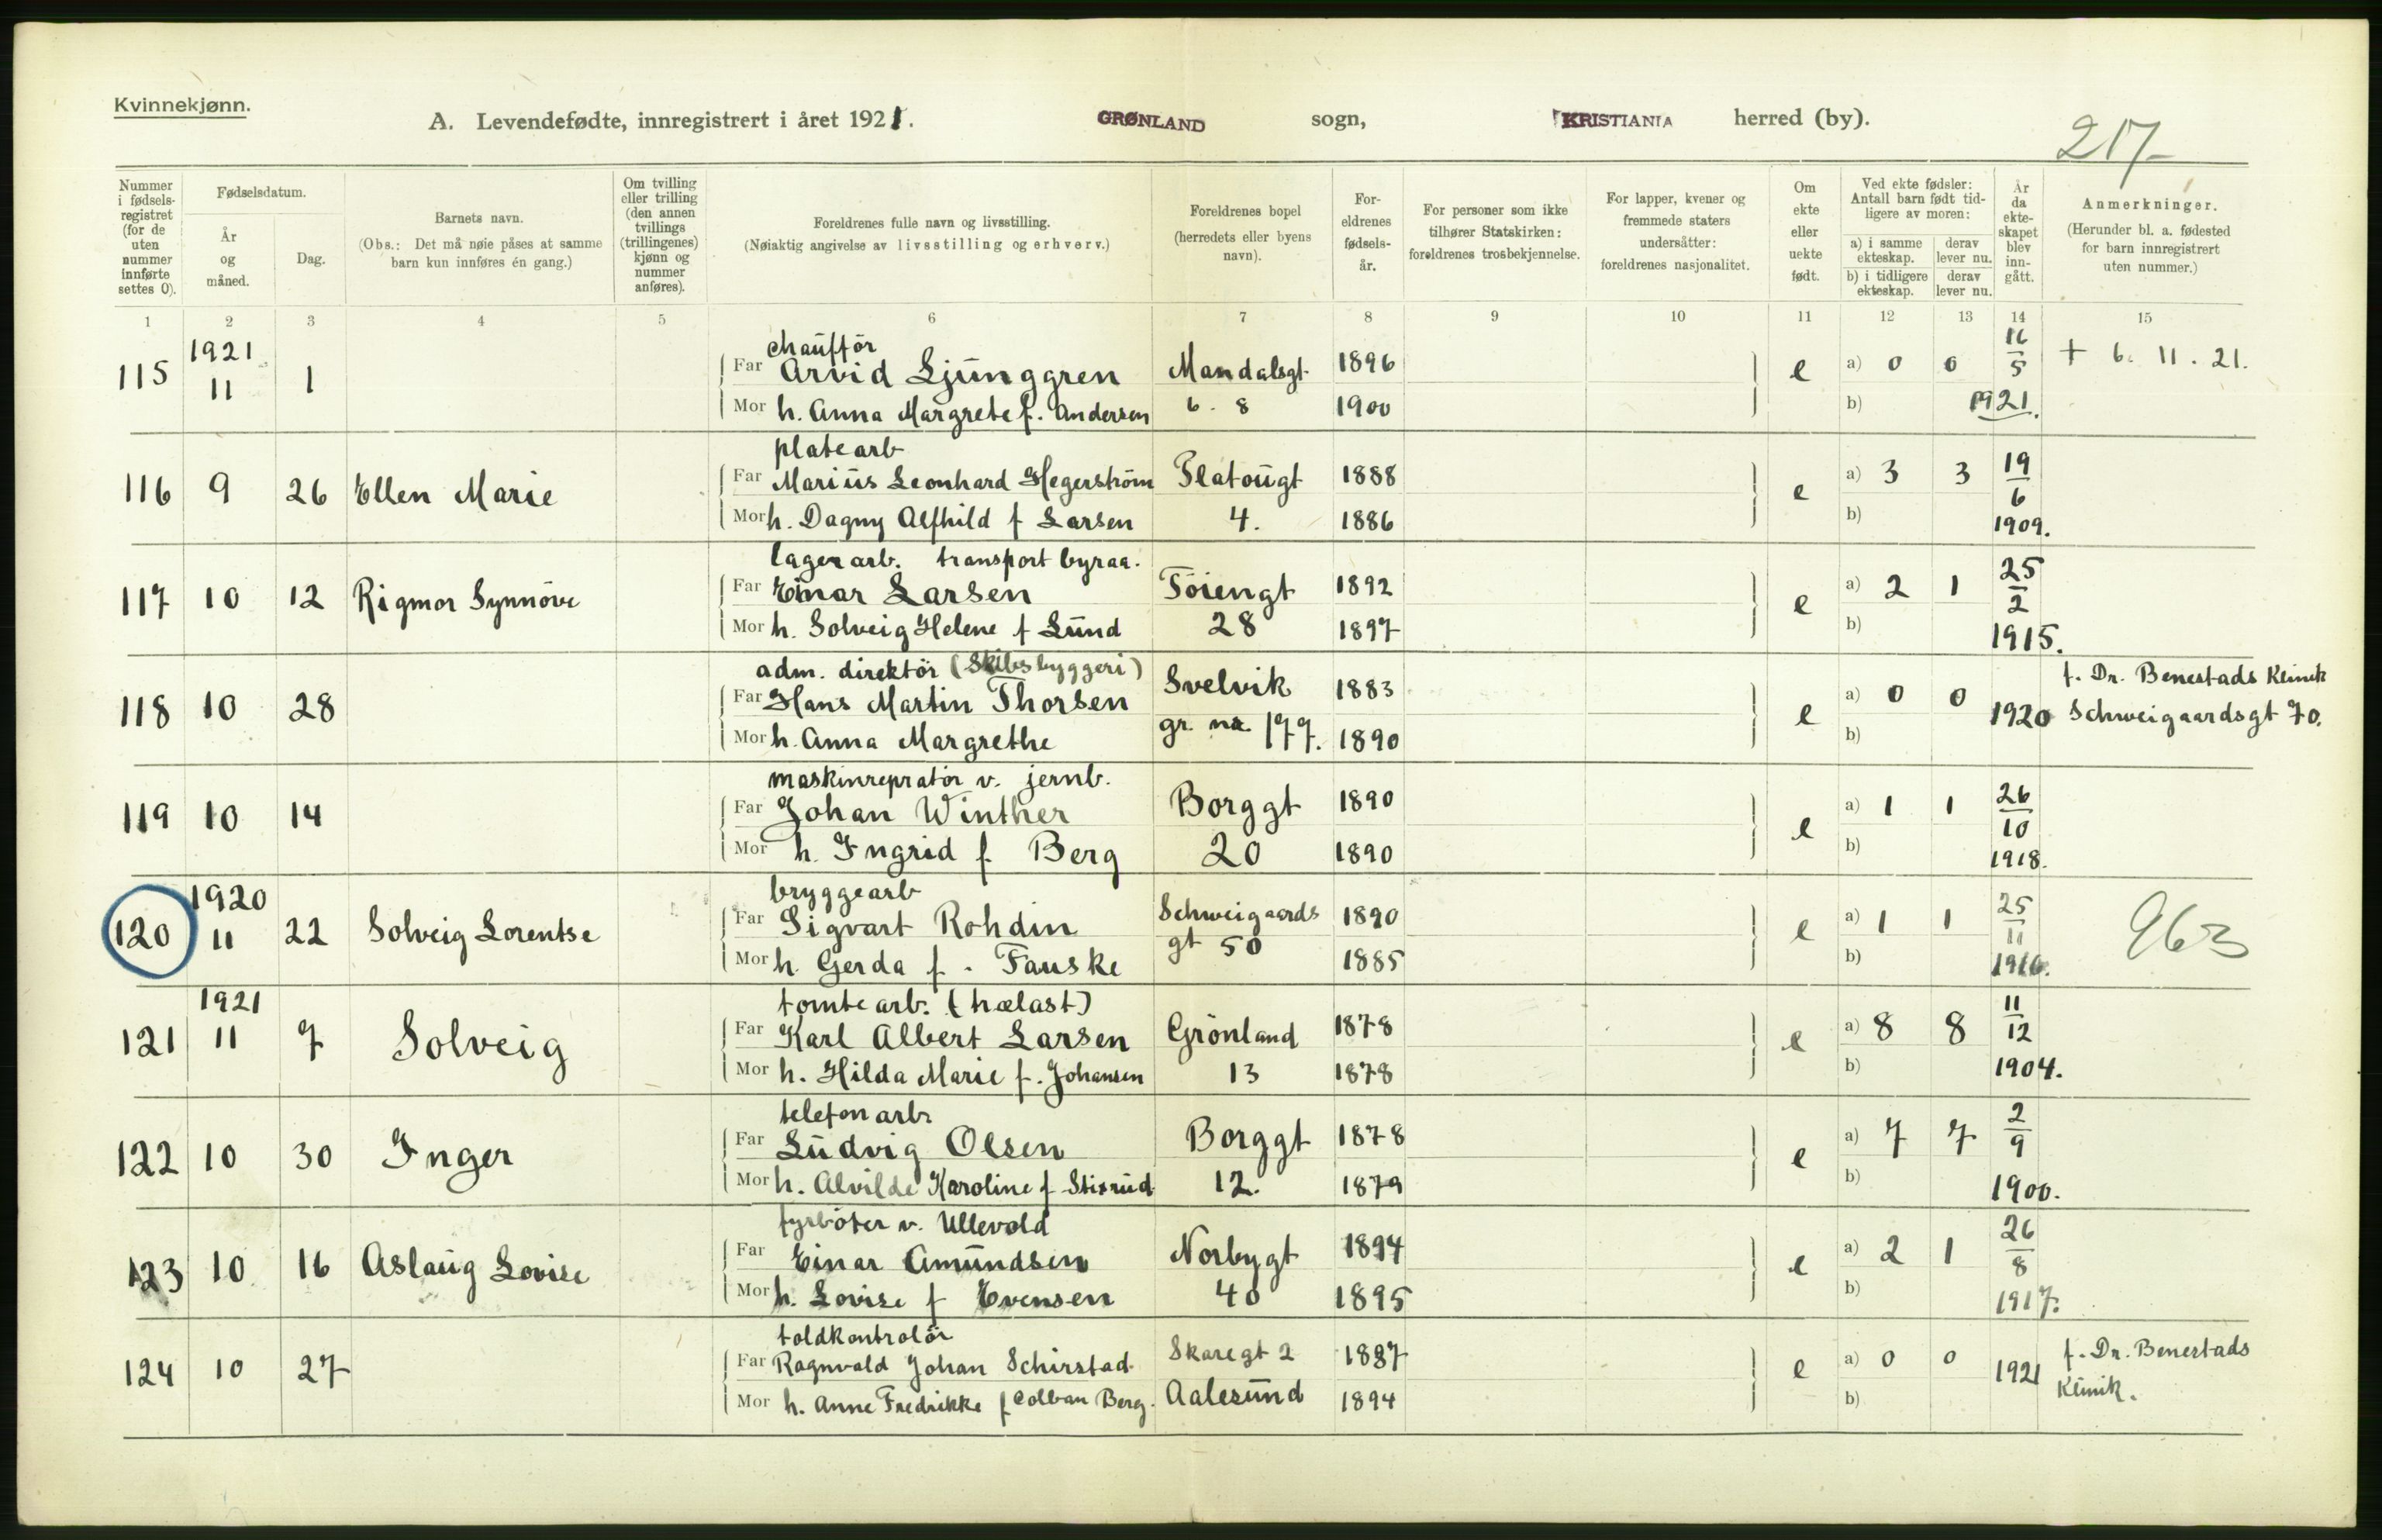 Kvinnekjønn.
A. Levendefødte, innregistrert i året 1921. GRØNLAND sogn, KRISTIANIA herred (by).
217-
Nummer i fødsels-registret (for de uten nummer innførte settes 0).
Fødselsdatum.
År og måned.
Dag.
Barnets navn.
(Obs.: Det må nøie påses at samme barn kun innføres én gang.)
Om tvilling eller trilling (den annen tvillings (trillingenes) kjønn og nummer anføres).
Foreldrenes fulle navn og livsstilling.
(Nøiaktig angivelse av livsstilling og erhverv.)
Foreldrenes bopel (herredets eller byens navn).
For-eldrenes fødsels-år.
For personer som ikke tilhører Statskirken: foreldrenes trosbekjennelse.
For lapper, kvener og fremmede staters undersåtter: foreldrenes nasjonalitet.
Om ekte eller uekte født.
Ved ekte fødsler: Antall barn født tid-ligere av moren:
a) i samme ekteskap. derav lever nu.
b) i tidligere ekteskap. derav lever nu.
År da ekte-skapet blev inn-gått.
Anmerkninger.
(Herunder bl. a. fødested for barn innregistrert uten nummer.)
1 2 3 4 5 6 7 8 9 10 11 12 13 14 15
chauffør
115 1921 11 1 Far Arvid Ljunggren Mandalsgt. 1896 e a) 0 0 16/5 + 6. 11. 21.
Mor h. Anna Margrete f. Andersen 6. 8 1900 b) 1921.
platearb
116 9 26 Ellen Marie Far Marius Leonhard Hegerstrøm Platougt 1888 e a) 3 3 19/6
Mor h. Dagny Alfhild f Larsen 4. 1886 b) 1909.
lagerarb. transportbyraa.
117 10 12 Rigmor Synnöve Far Einar Larsen Töiengt 1892 e a) 2 1 25/2
Mor h. Solveig Helene f Lund 28 1897 b) 1915.
adm. direktör (Skibsbyggeri)
118 10 28 Far Hans Martin Thorsen Svelvik 1883 e a) 0 0 1920 f. Dr. Benestads Klinik
Mor h. Anna Margrethe gr. nr. 177. 1890 b) Schweigaardsgt 70.
maskinrepratör v. jernb.
119 10 14 Far Johan Winther Borggt 1890 e a) 1 1 26/10
Mor h. Ingrid f Berg 20 1890 b) 1918.
bryggearb
120 1920 11 22 Solveig Lorentse Far Sigvart Rohdin Schweigaards 1890 e a) 1 1 25/11 963
Mor h. Gerda f. Fauske gt 50 1885 b) 1916.
tomtearb. (hælast)
121 1921 11 7 Solveig Far Karl Albert Larsen Grönland 1878 e a) 8 8 11/12
Mor h. Hilda Marie f. Johansen 13 1878 b) 1904.
telefonarb
122 10 30 Inger Far Ludvig Olsen Borggt 1878 e a) 7 7 2/9
Mor h. Alvilde Karoline f Stixrud 12. 1879 b) 1900.
fyrböter v. Ullevold
123 10 16 Aslaug Lovise Far Einar Amundsen Norbygt 1894 e a) 2 1 26/8
Mor h. Lovise f Evensen 40 1895 b) 1917.
toldkontrolör
124 10 27 Far Ragnvald Johan Schirstad Skaregt 2 1887 e a) 0 0 1921 f. Dr. Benestads
Mor h. Anne Fredrikke f Colban Berg. Aalesund 1894 b) Klinik.